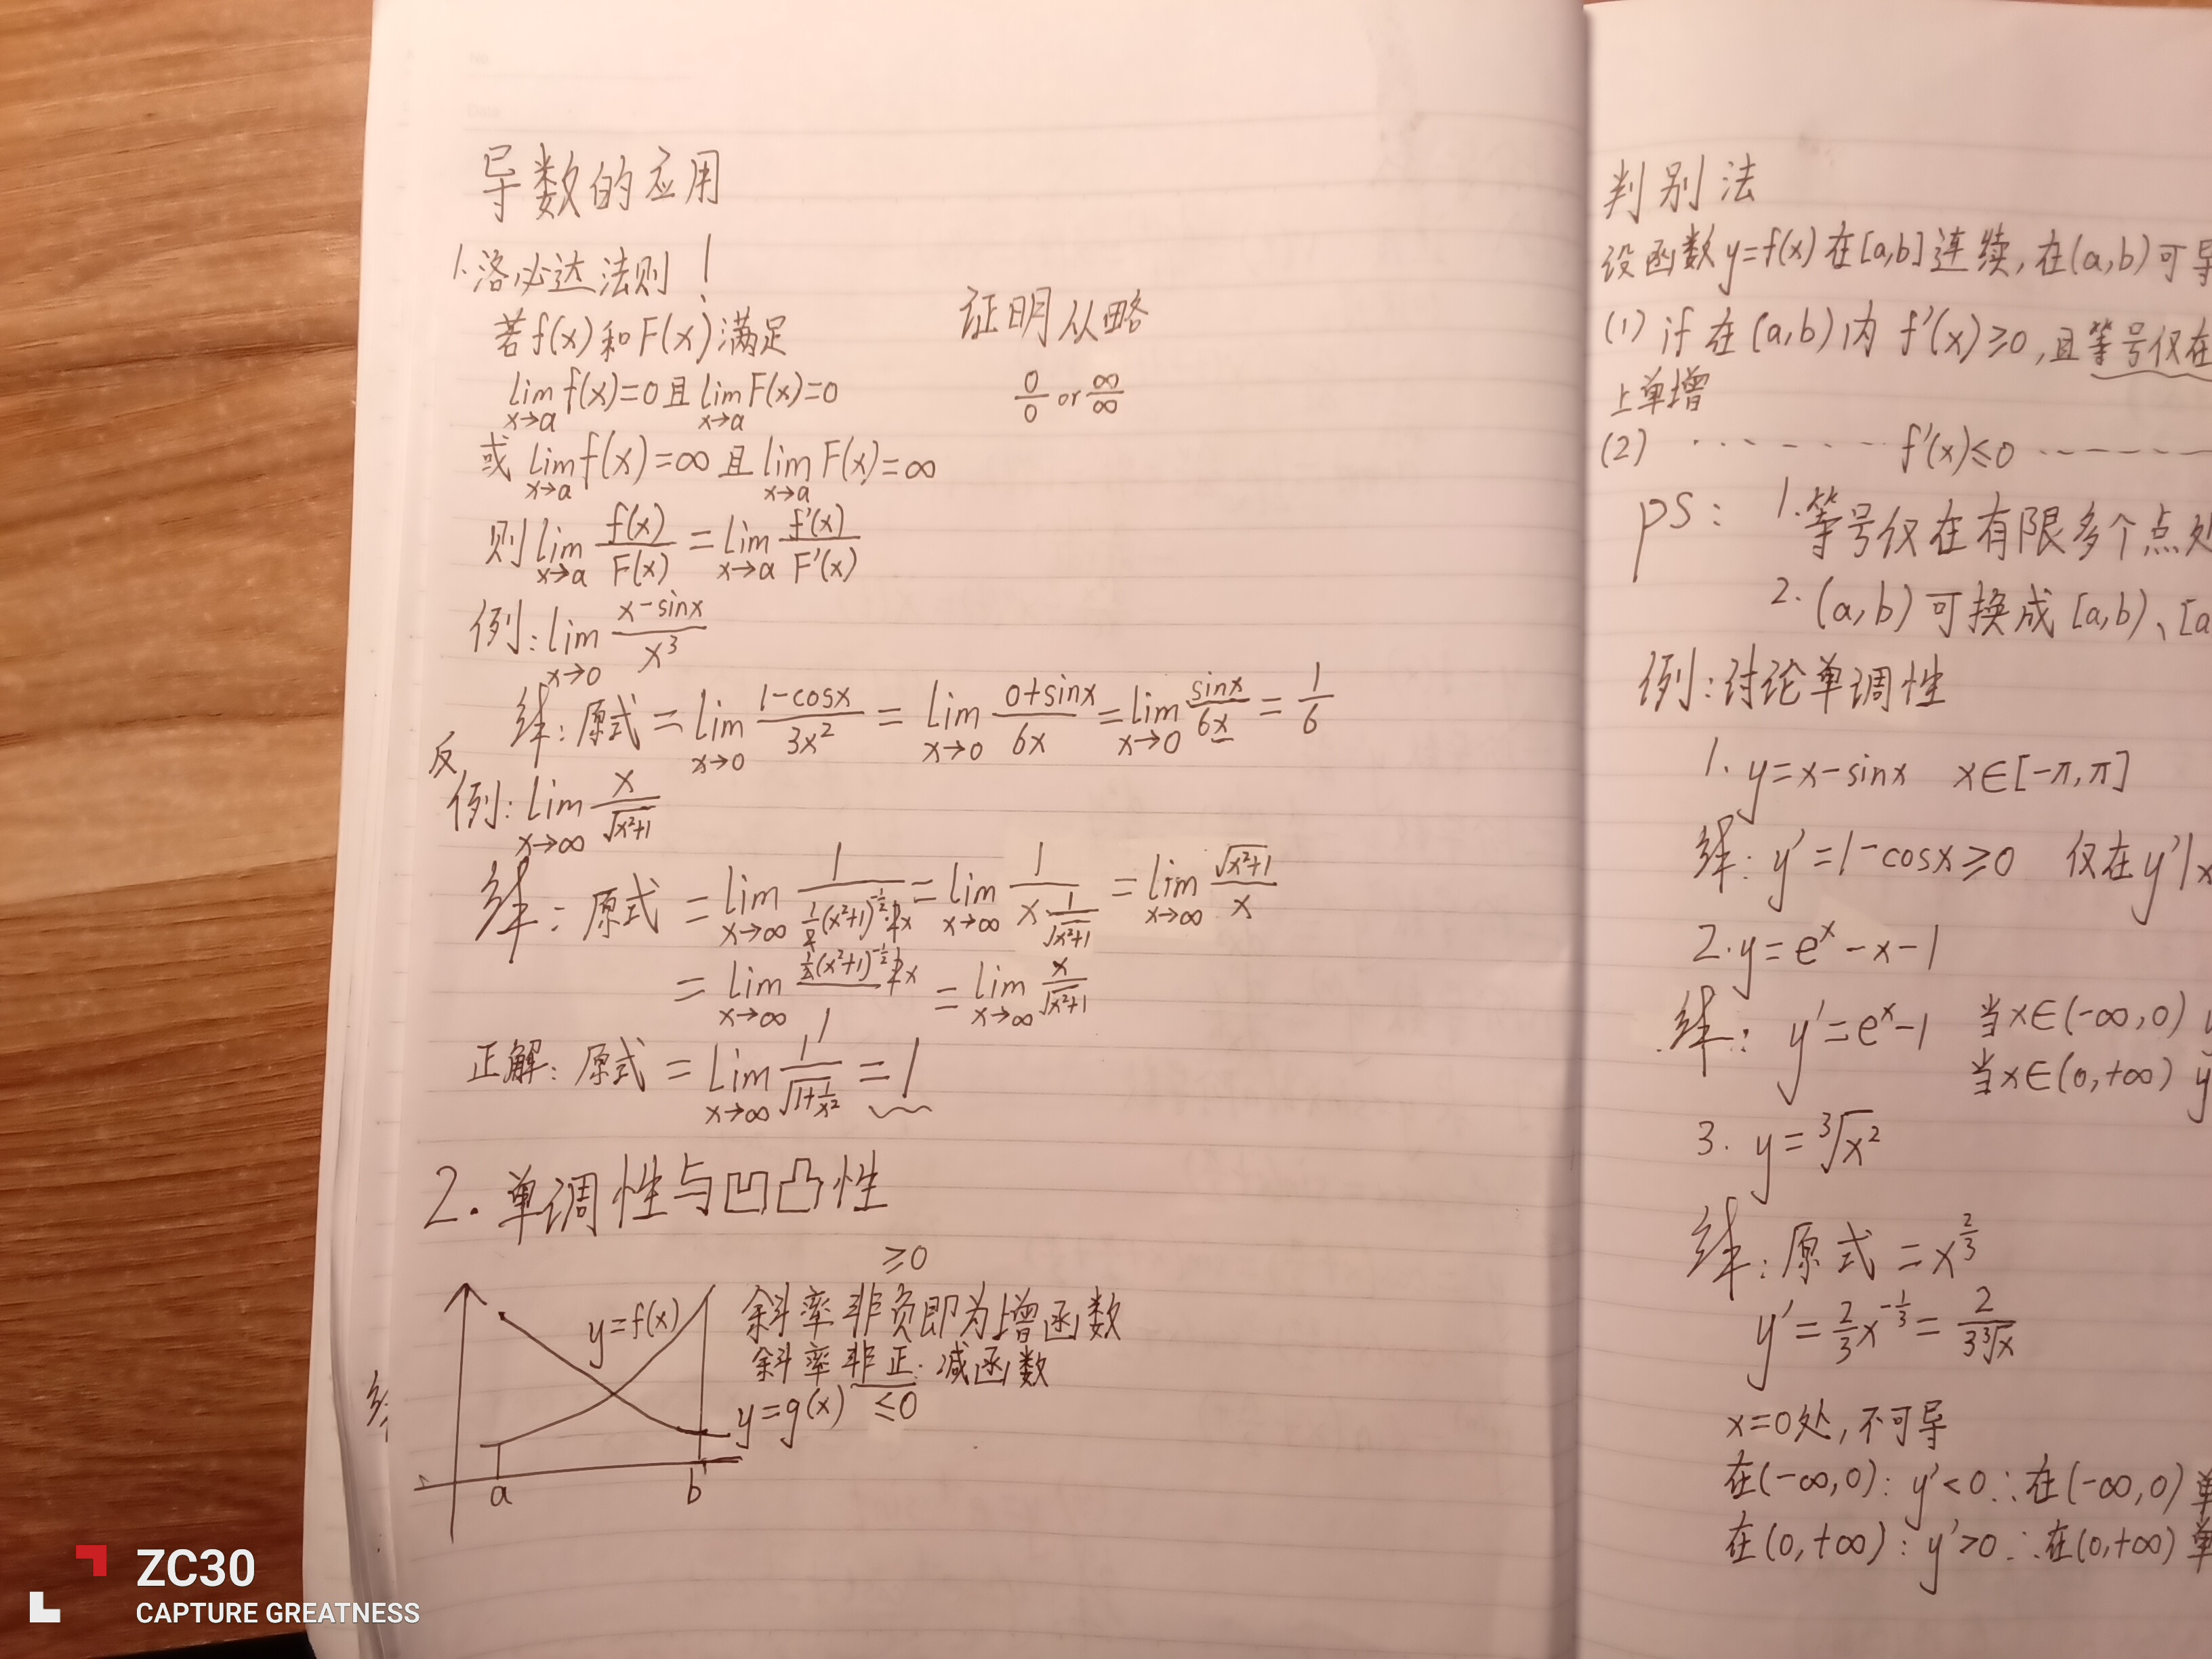 导数的应用
1.洛必达法则!
若f(x)和F(x)满足
证明从略
lim x→a f(x)=0且lim x→a F(x)=0
0/0 or ∞/∞
或 lim x→a f(x)=∞ 且 lim x→a F(x)=∞
则 lim x→a f(x)/F(x) = lim x→a f'(x)/F'(x)
例: lim x→0 (x-sinx)/x³
解:原式 = lim x→0 (1-cosx)/3x² = lim x→0 (0+sinx)/6x = lim x→0 sinx/6x = 1/6
反
例: lim x→∞ x/√(x²+1)
解:原式 = lim x→∞ 1/(1/2(x²+1)^(-1/2)·2x) = lim x→∞ 1/(x 1/√(x²+1)) = lim x→∞ √(x²+1)/x
= lim x→∞ (1/2(x²+1)^(-1/2)·2x)/1 = lim x→∞ x/√(x²+1)
正解:原式 = lim x→∞ 1/√(1+1/x²) = 1
2.单调性与凹凸性
≥0
y=f(x)
斜率非负即为增函数
斜率非正:减函数
y=g(x) ≤0
a b
判别法
设函数y=f(x)在[a,b]连续,在(a,b)可导
(1) if 在(a,b)内 f'(x)≥0,且等号仅在
上单增
(2) ······ f'(x)≤0 ······
ps: 1.等号仅在有限多个点处
2.(a,b)可换成[a,b)、[a
例:讨论单调性
1. y=x-sinx x∈[-π,π]
解: y'=1-cosx≥0 仅在y'|x
2. y=e^x-x-1
解: y'=e^x-1 当x∈(-∞,0) y
当x∈(0,+∞) y
3. y=³√x²
解:原式=x^(2/3)
y'=2/3 x^(-1/3)=2/(3³√x)
x=0处,不可导
在(-∞,0): y'<0∴在(-∞,0)单
在(0,+∞): y'>0∴在(0,+∞)单
ZC30
CAPTURE GREATNESS